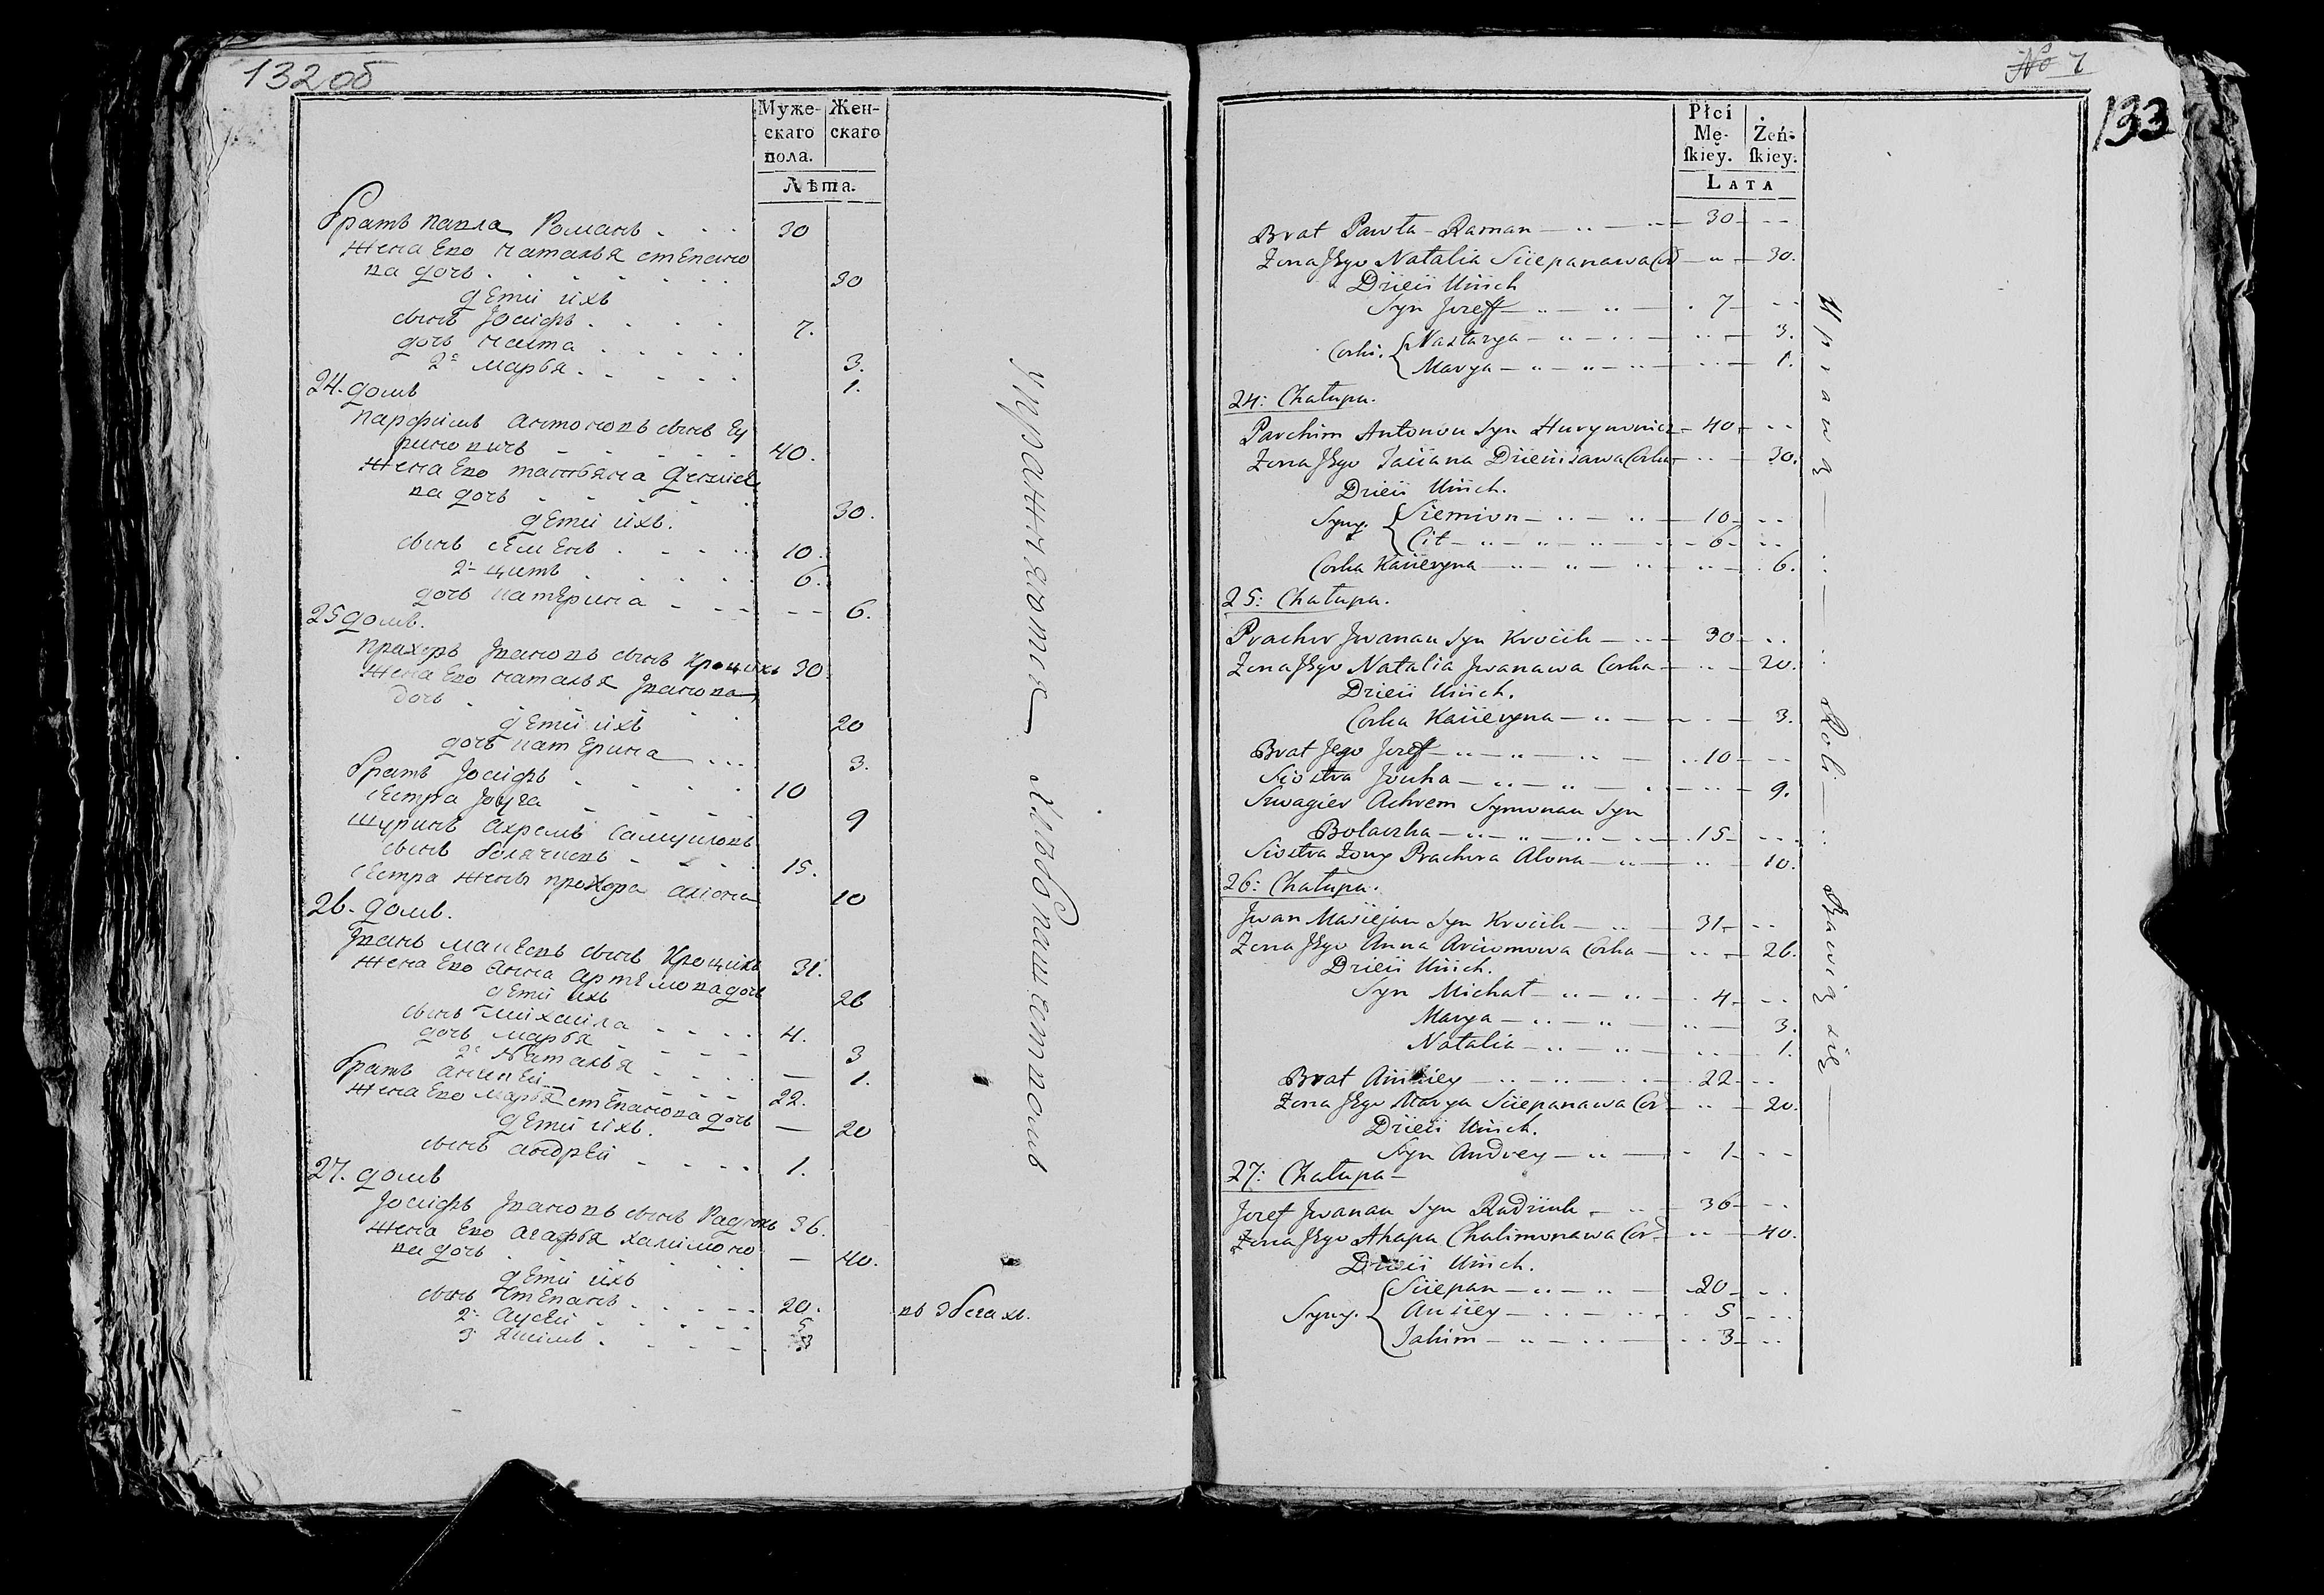 132 об
Муже-
скаго
пола.
Жен-
скаго
Лѣта.
братъ павла Романъ 30
жена Ево наталья степано
ва дочь 30
дети ихъ
сынъ Іосифъ 7.
дочь наста 3.
2я марья 1.
24. домъ
парфимъ антоновъ сынъ Гу
риновичъ 40.
жена Ево татьяна денисо
ва дочь 30.
дети ихъ.
сынъ семенъ 10.
2й цитъ 6.
дочь катерина 6.
25 домъ.
прахоръ Івановъ сынъ Кроцихъ 30
жена Ево наталья Іванова
дочь 20
дети ихъ
дочь катерина 3.
братъ Іосифъ 10
сестра Іоуга 9
шуринъ ахремъ самуиловъ
сынъ болячковъ 15.
сестра жены прохора алiона 10
26. домъ.
Іванъ мацеевъ сынъ Кроцихъ 31.
жена Ево анна артемова дочь 26
дети ихъ
сынъ михаила 4.
дочь марья 3
2я Наталья 1.
братъ аникей 22.
жена Ево марья степанова дочь 20
дети ихъ.
сынъ андрей 1.
27. домъ
Іосифъ Івановъ сынъ Радюкъ 36.
жена Ево агафья халимоно
ва дочь 40.
дети ихъ
сынъ степанъ 20. въ збегахъ.
2й аусей 5
3й якимъ 3
Упражняются хлебопашествомъ
No 7
133
Płci
Mę-
skiey.
Żeń-
skiey.
LATA
Brat Pawła Raman 30
Zona Jego Natalia Sciepanawa Cor 30.
Dzieci Unich
Syn Jozeff 7
Corki. Nastazya 3.
Marya 1.
24: Chałupa.
Parchim Antonou Syn Hurynowicz 40
Zona Jego Taciana Dzienisawa Corka 30.
Dzieci Unich.
Syny. Siemion 10
Cit 6
Corka Kacieryna 6.
25: Chałupa.
Prachor Jwanau Syn Krocik 30
Zona Jego Natalia Jwanawa Corka 20.
Dzieci Unich.
Corka Kacieryna 3.
Brat Jego Jozeff 10
Siostra Jouha 9.
Szwagier Achrem Symonau Syn
Bolaczka 15
Siostra Zony Prachora Alona 10.
26: Chałupa.
Jwan Maciejau Syn Krocik 31
Zona Jego Anna Arciomowa Corka 26.
Dzieci Unich.
Syn Michał 4
Marya 3.
Natalia 1.
Brat Anikiey 22
Zona Jego Marya Sciepanawa Cor 20.
Dzieci Unich.
Syn Andrey 1
27: Chałupa
Jozef Jwanau Syn Radziuk 36
Zona Jego Ahapa Chalimonawa Cor 40.
Dzieci Unich.
Syny. Sciepan 20
Ausiey 5
Jakim 3
Uprawą Roli Bawią się